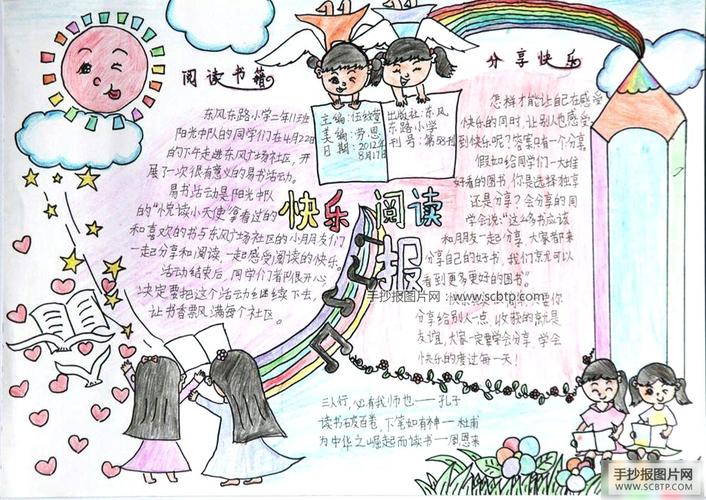 阅读书籍
东风东路小学二年11班
阳光中队的同学们在4月22日
的下午走进东风广场社区,开
展了一次很有意义的易书活动。
易书活动是阳光中队
的“悦读小天使”拿看过的
和喜欢的书与东风广场社区的小朋友们
一起分享和阅读,一起感受阅读的快乐。
活动结束后,同学们都很开心
决定要把这个活动继续下去,
让书香飘满每个社区。
主编:伍绮莹
美编:劳恩
日期:2012年
8月17日
出版社:东风
东路小学
刊号:第58刊
快乐阅读
报
分享快乐
怎样才能让自己在感受
快乐的同时,让别人也感受
到快乐呢?答案只有一个:分享。
假如给同学们一大堆
好看的图书,你是选择独享
还是分享?会分享的同
学会说:“这么多书应该
和朋友一起分享,大家都来
分享自己的好书,我们就可以
看到更多更好的图书”。
要你
分享给别人一点,收获的就是
友谊,大家一定要学会分享,学会
快乐的度过每一天!
三人行,必有我师也——孔子
读书破百卷,下笔如有神——杜甫
为中华之崛起而读书——周恩来
手抄报图片网:www.scbtp.com
手抄报图片网
WWW.SCBTP.COM